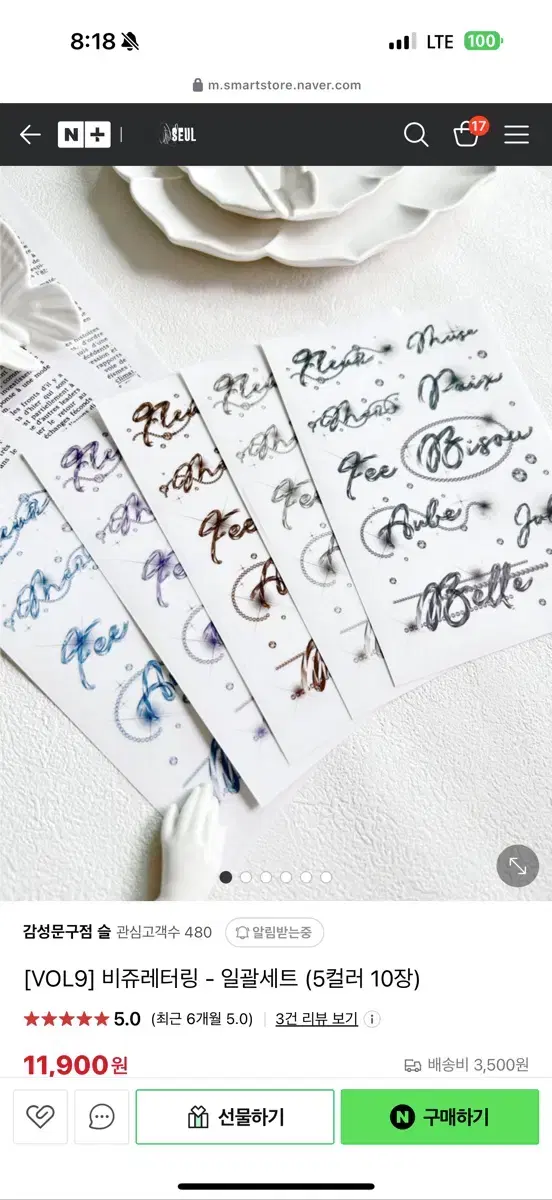 8:18
LTE
100
m.smartstore.naver.com
N+ | SEUL
17
Fleur
Muse
Paix
Fee
Bisou
Aube
Belle
Fee
Fee
감성문구점 슬 관심고객수 480 알림받는중
[VOL9] 비쥬레터링 - 일괄세트 (5컬러 10장)
5.0 (최근 6개월 5.0) | 3건 리뷰 보기
11,900원
배송비 3,500원
선물하기
N 구매하기